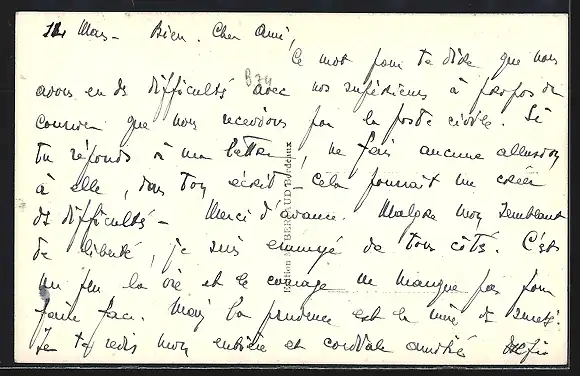 14 Mars - Bien. Cher Ami,
Ce mot pour te dire que nous
avons eu ds difficultés avec nos supérieurs à propos du
courrier que nous recevons par la poste civile. Si
tu réponds à ma lettre, ne fais aucune allusion
à elle, dans ton écrit - cela pourrait me créer
ds difficultés - Merci d'avance. Malgré mon semblant
de liberté, je suis ennuyé de tous côtés. C'est
un peu la vie et le courage ne manque pas pour
faire face. Mais la prudence est la mère de sureté.
Je te redis mon entière et cordiale amitié
B74
Edition M. BERGEAUD Bordeaux